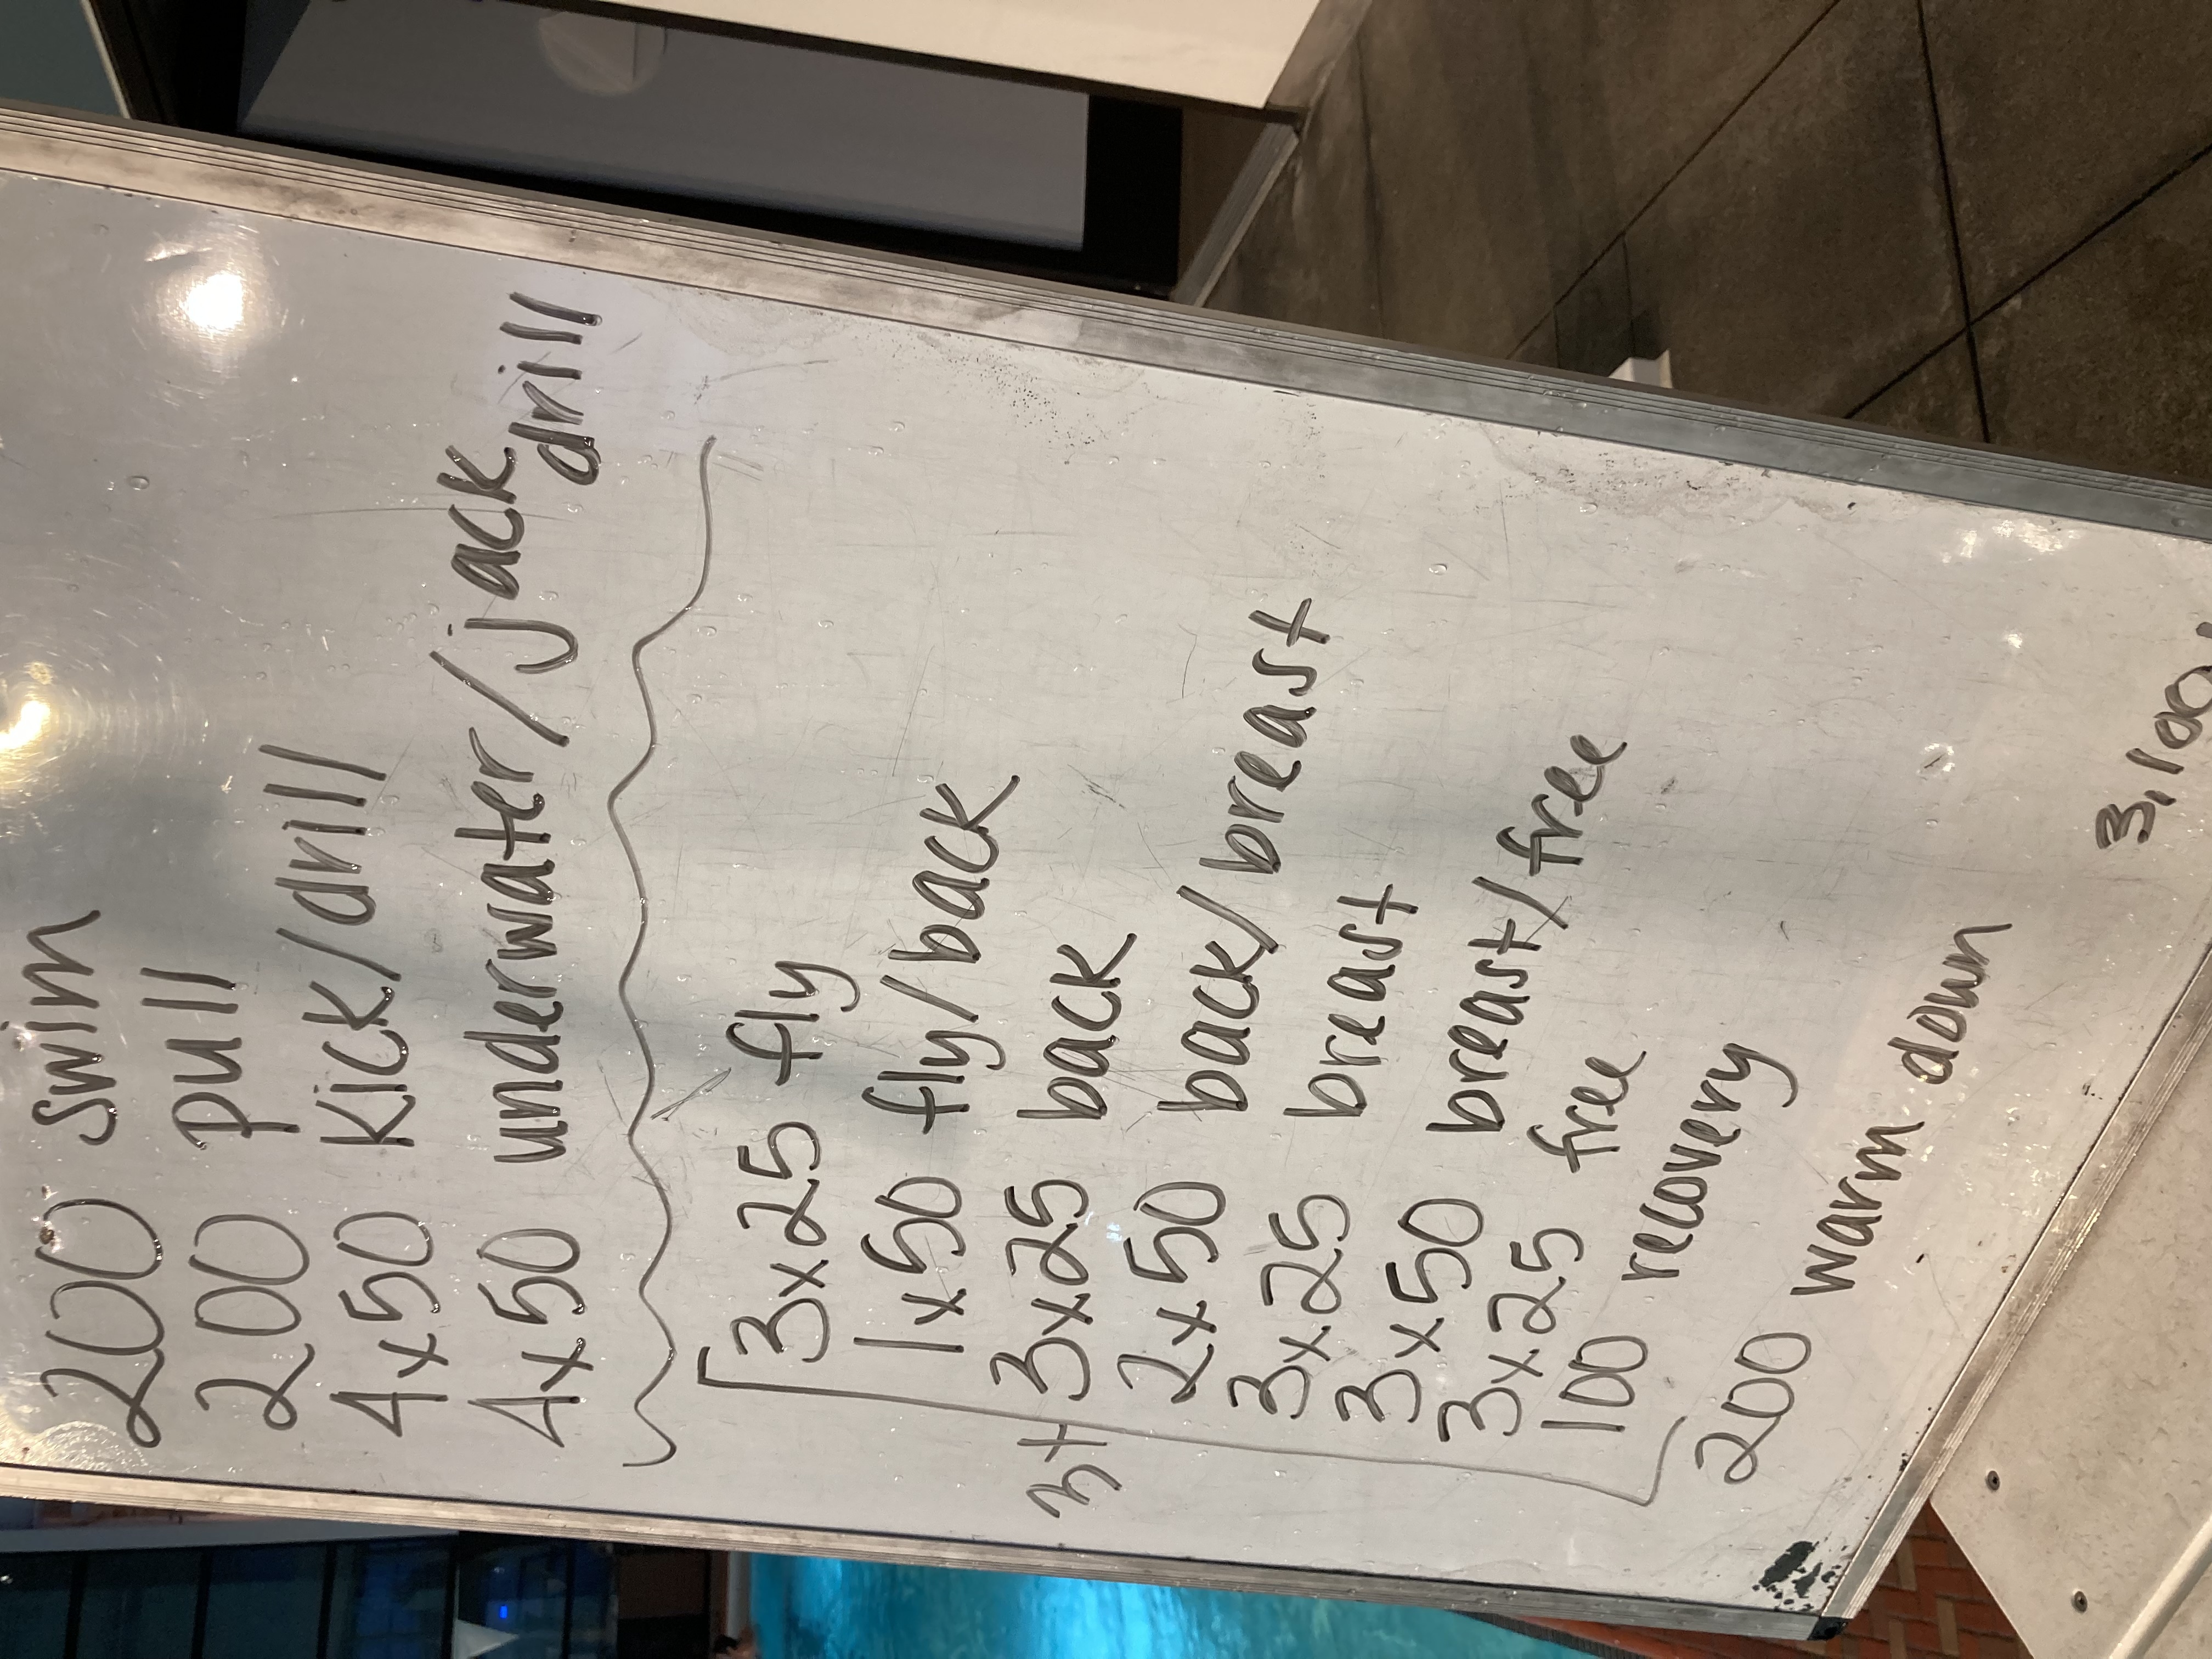 200 swim
200 pull
4x50 kick/drill
4x50 underwater/jack
drill
3x25 fly
1x50 fly/back
3x 3x25 back
2x50 back/breast
3x25 breast
3x50 breast/free
3x25 free
100 recovery
200 warm down
3,100